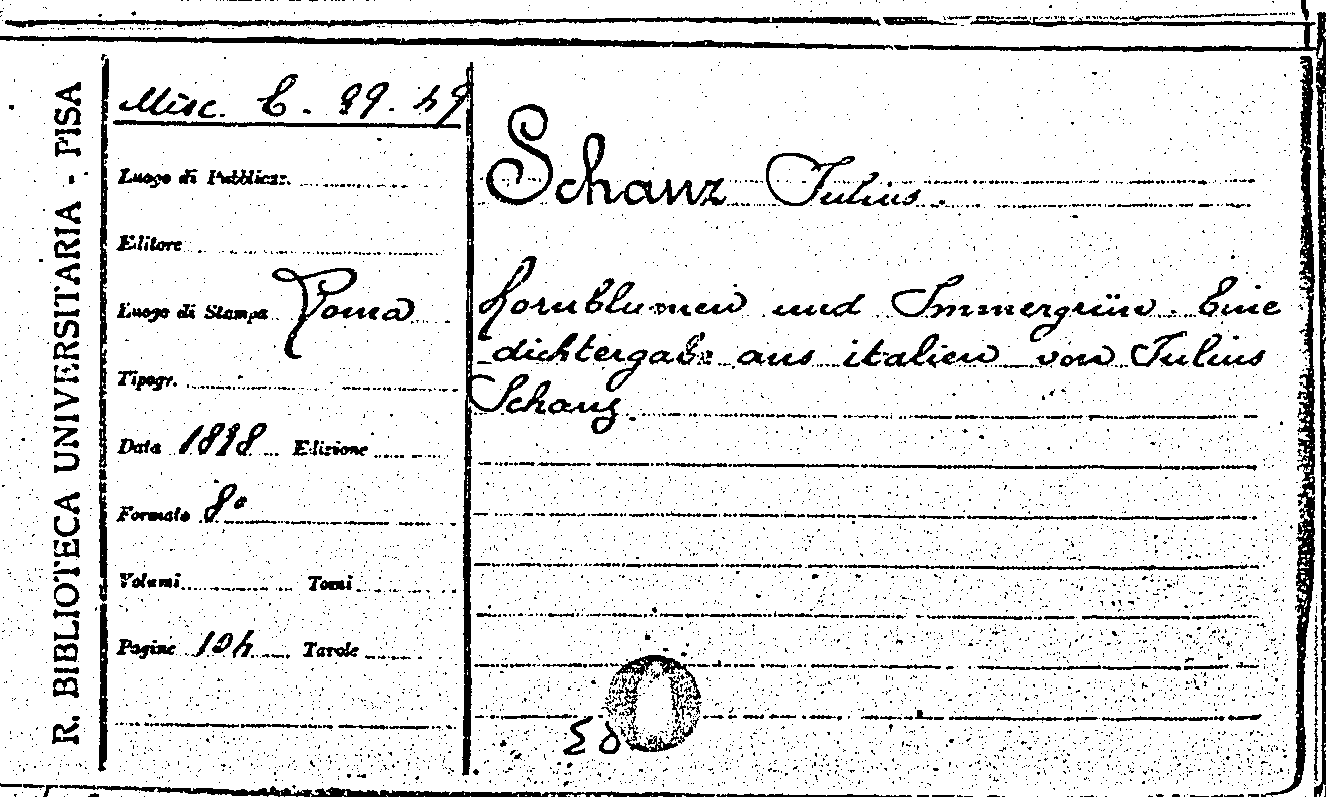 R. BIBLIOTECA UNIVERSITARIA - PISA
Misc. E. 99. 49
Luogo di Pubblicaz.
Editore
Luogo di Stampa Roma
Tipogr.
Data 1898 Edizione
Formato 8º
Volumi Tomi
Pagine 104 Tavole
Schanz Julius.
Kornblumen und Immergrün. Eine
dichtergabe aus italien von Julius
Schanz.